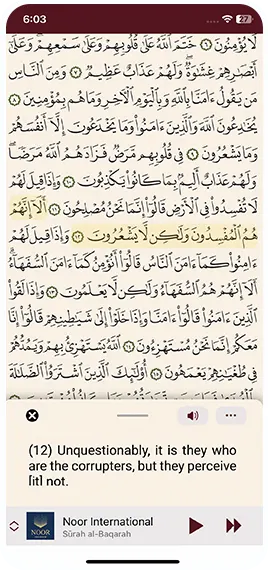 6:03
27
لَا يُؤْمِنُونَ ٦ خَتَمَ ٱللَّهُ عَلَىٰ قُلُوبِهِمْ وَعَلَىٰ سَمْعِهِمْ ۖ وَعَلَىٰٓ
أَبْصَٰرِهِمْ غِشَٰوَةٌ ۖ وَلَهُمْ عَذَابٌ عَظِيمٌ ٧ وَمِنَ ٱلنَّاسِ
مَن يَقُولُ ءَامَنَّا بِٱللَّهِ وَبِٱلْيَوْمِ ٱلْءَاخِرِ وَمَا هُم بِمُؤْمِنِينَ ٨
يُخَٰدِعُونَ ٱللَّهَ وَٱلَّذِينَ ءَامَنُوا۟ وَمَا يَخْدَعُونَ إِلَّآ أَنفُسَهُمْ
وَمَا يَشْعُرُونَ ٩ فِى قُلُوبِهِم مَّرَضٌ فَزَادَهُمُ ٱللَّهُ مَرَضًا ۖ
وَلَهُمْ عَذَابٌ أَلِيمٌۢ بِمَا كَانُوا۟ يَكْذِبُونَ ١٠ وَإِذَا قِيلَ لَهُمْ
لَا تُفْسِدُوا۟ فِى ٱلْأَرْضِ قَالُوٓا۟ إِنَّمَا نَحْنُ مُصْلِحُونَ ١١ أَلَآ إِنَّهُمْ
هُمُ ٱلْمُفْسِدُونَ وَلَٰكِن لَّا يَشْعُرُونَ ١٢ وَإِذَا قِيلَ لَهُمْ
ءَامِنُوا۟ كَمَآ ءَامَنَ ٱلنَّاسُ قَالُوٓا۟ أَنُؤْمِنُ كَمَآ ءَامَنَ ٱلسُّفَهَآءُ ۗ
أَلَآ إِنَّهُمْ هُمُ ٱلسُّفَهَآءُ وَلَٰكِن لَّا يَعْلَمُونَ ١٣ وَإِذَا لَقُوا۟
ٱلَّذِينَ ءَامَنُوا۟ قَالُوٓا۟ ءَامَنَّا وَإِذَا خَلَوْا۟ إِلَىٰ شَيَٰطِينِهِمْ قَالُوٓا۟ إِنَّا
مَعَكُمْ إِنَّمَا نَحْنُ مُسْتَهْزِءُونَ ١٤ ٱللَّهُ يَسْتَهْزِئُ بِهِمْ وَيَمُدُّهُمْ
فِى طُغْيَٰنِهِمْ يَعْمَهُونَ ١٥ أُو۟لَٰٓئِكَ ٱلَّذِينَ ٱشْتَرَوُا۟ ٱلضَّلَٰلَةَ
(12) Unquestionably, it is they who
are the corrupters, but they perceive
[it] not.
Noor International
Sūrah al-Baqarah